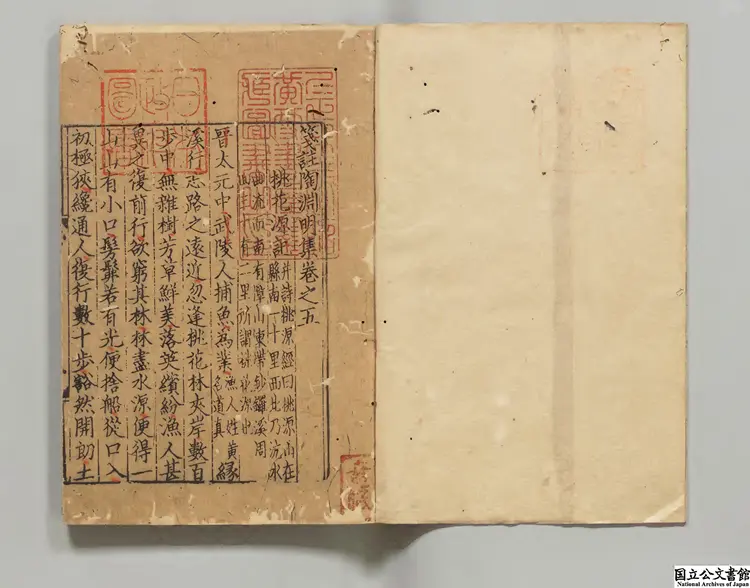 箋註陶淵明集卷之五
桃花源記并詩桃源經曰桃源山在
縣南一十里西北乃沅水
曲流而南有障山東帶鈔鑼溪周
有二里所謂桃花源也
晉太元中武陵人捕魚為業漁人姓黄
名道真
緣
溪行忘路之遠近忽逢桃花林夾岸數百
步中無雜樹芳草鮮美落英繽紛漁人甚
異之復前行欲窮其林林盡水源便得一
山山有小口髣髴若有光便捨船從口入
初極狹纔通人復行數十步豁然開朗土
国立公文書館
National Archives of Japan